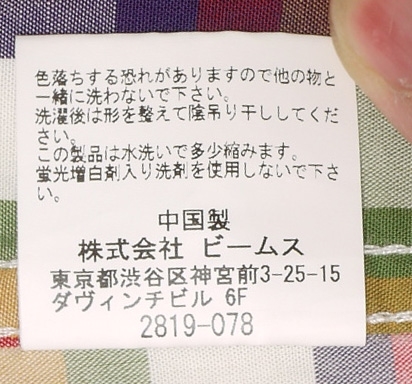 色落ちする恐れがありますので他の物と
一緒に洗わないで下さい。
洗濯後は形を整えて陰吊り干ししてくだ
さい。
この製品は水洗いで多少縮みます。
蛍光増白剤入り洗剤を使用しないで下さ
い。
中国製
株式会社 ビームス
東京都渋谷区神宮前3-25-15
ダヴィンチビル 6F
2819-078